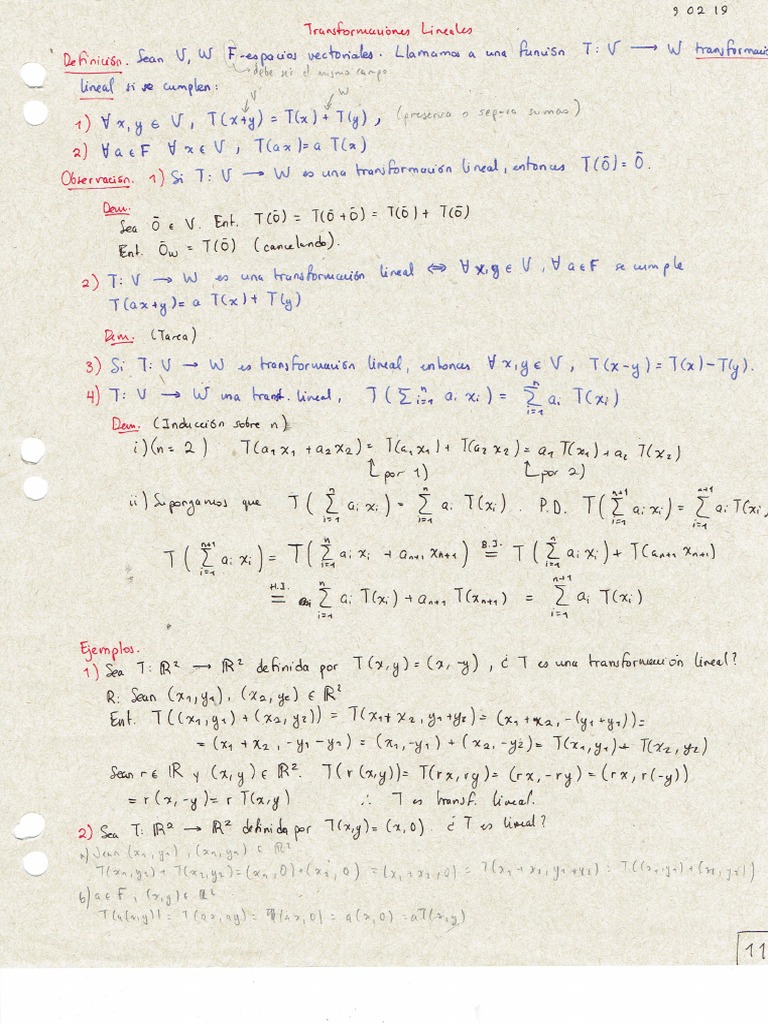 9 02 19
Transformaciones Lineales
Definición. Sean V, W F-espacios vectoriales. Llamamos a una función T: V → W transformació
debe ser el mismo campo
lineal si se cumplen:
V W
1) ∀ x,y ∈ V, T(x+y) = T(x) + T(y), (preserva o separa sumas)
2) ∀ a ∈ F ∀ x ∈ V, T(ax) = a T(x)
Observación. 1) Si T: V → W es una transformación lineal, entonces T(Ō) = Ō.
Dem.
Sea Ō ∈ V. Ent. T(Ō) = T(Ō + Ō) = T(Ō) + T(Ō)
Ent. Ō_W = T(Ō) (cancelando).
2) T: V → W es una transformación lineal ⇔ ∀ x,y ∈ V, ∀ a ∈ F se cumple
T(ax+y) = a T(x) + T(y)
Dem. (Tarea)
3) Si T: V → W es transformación lineal, entonces ∀ x,y ∈ V, T(x-y) = T(x) - T(y).
4) T: V → W una transf. lineal, T(∑_{i=1}^{n} a_i x_i) = ∑_{i=1}^{n} a_i T(x_i)
Dem. (Inducción sobre n)
i) (n = 2) T(a_1 x_1 + a_2 x_2) = T(a_1 x_1) + T(a_2 x_2) = a_1 T(x_1) + a_2 T(x_2)
por 1) por 2)
ii) Supongamos que T(∑_{i=1}^{n} a_i x_i) = ∑_{i=1}^{n} a_i T(x_i). P.D. T(∑_{i=1}^{n+1} a_i x_i) = ∑_{i=1}^{n+1} a_i T(x_i
T(∑_{i=1}^{n+1} a_i x_i) = T(∑_{i=1}^{n} a_i x_i + a_{n+1} x_{n+1}) =^{B.I.} T(∑_{i=1}^{n} a_i x_i) + T(a_{n+1} x_{n+1})
=^{H.I.} ∑_{i=1}^{n} a_i T(x_i) + a_{n+1} T(x_{n+1}) = ∑_{i=1}^{n+1} a_i T(x_i)
Ejemplos.
1) Sea T: ℝ² → ℝ² definida por T(x,y) = (x, -y), ¿ T es una transformación lineal?
R: Sean (x_1,y_1), (x_2,y_2) ∈ ℝ²
Ent. T((x_1,y_1) + (x_2,y_2)) = T(x_1+x_2, y_1+y_2) = (x_1+x_2, -(y_1+y_1)) =
= (x_1+x_2, -y_1-y_1) = (x_1,-y_1) + (x_2,-y_2) = T(x_1,y_1) + T(x_2,y_2)
Sean r ∈ ℝ y (x,y) ∈ ℝ². T(r(x,y)) = T(rx,ry) = (rx,-ry) = (rx, r(-y))
= r(x,-y) = r T(x,y) ∴ T es transf. lineal.
2) Sea T: ℝ² → ℝ² definida por T(x,y) = (x,0). ¿ T es lineal?
a) Sean (x_1,y_1), (x_2,y_2) ∈ ℝ²
T(x_1,y_1) + T(x_2,y_2) = (x_1,0) + (x_2,0) = (x_1+x_2,0) = T(x_1+x_2, y_1+y_2) = T((x_1,y_1) + (x_2,y_2))
b) a ∈ F, (x,y) ∈ ℝ²
T(a(x,y)) = T(ax,ay) = (ax,0) = a(x,0) = aT(x,y)
11